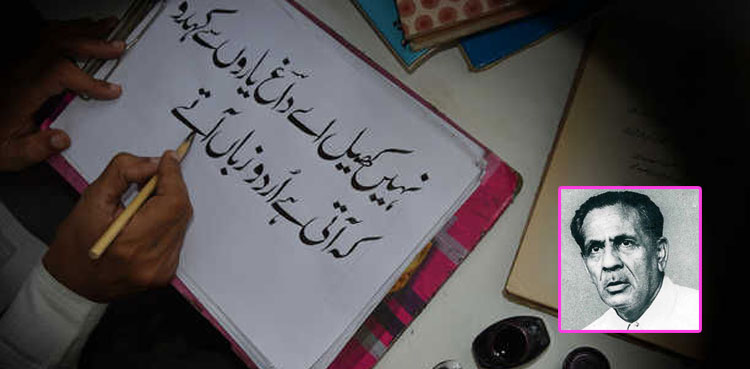 نہیں کھیل اے داغؔ یاروں سے کہہ دو
کہ آتی ہے اُردو زباں آتے